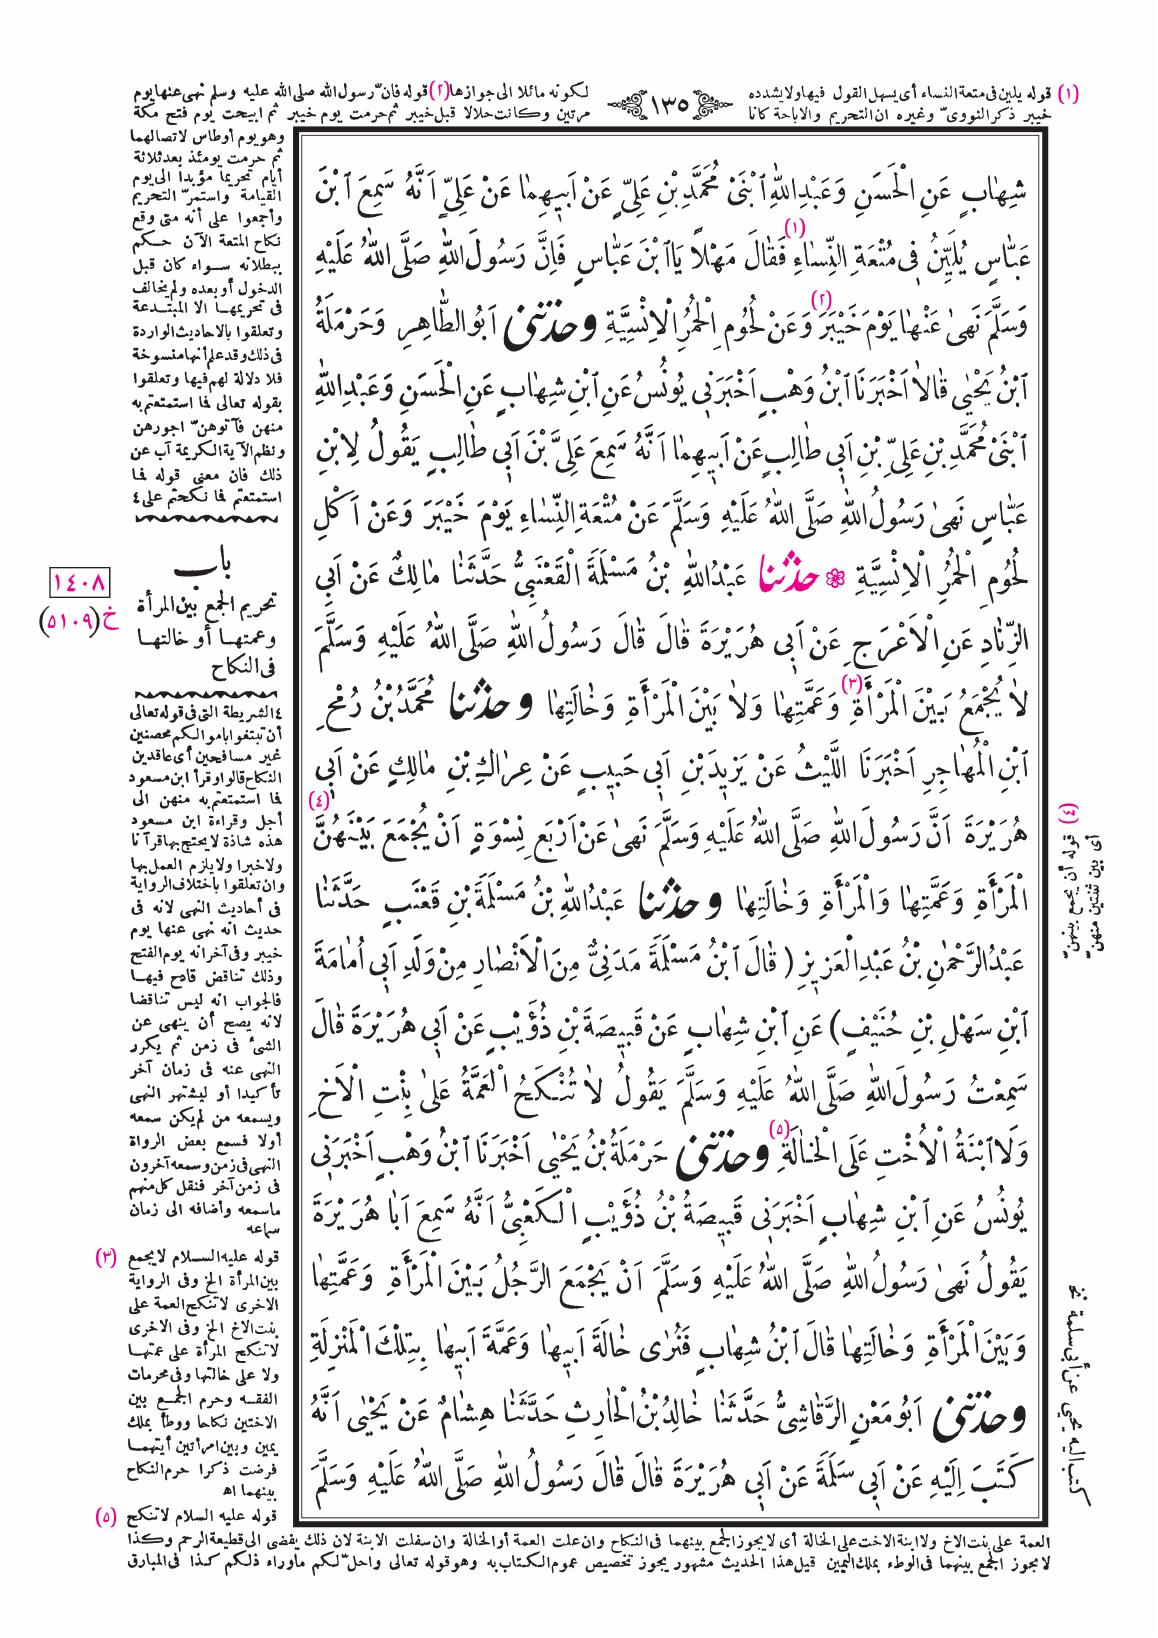 ١٣٥
(١) قوله يلين فى متعة النساء أى يسهل القول فيها ولا يشدده لكونه مائلا الى جوازها (٢) قوله فان رسول الله صلى الله عليه وسلم نهى عنها يوم
خيبر ذكر النووىّ وغيره ان التحريم والاباحة كانا مرتين وكانت حلالا قبل خيبر ثم حرمت يوم خيبر ثم ابيحت يوم فتح مكة
وهو يوم أوطاس لاتصالهما
ثم حرمت يومئذ بعد ثلاثة
أيام تحريما مؤبدا الى يوم
القيامة واستمرّ التحريم
وأجمعوا على أنه متى وقع
نكاح المتعة الآن حكم
ببطلانه سواء كان قبل
الدخول أو بعده ولم يخالف
فى تحريمها الا المبتدعة
وتعلقوا بالاحاديث الواردة
فى ذلك وقد علم أنها منسوخة
فلا دلالة لهم فيها وتعلقوا
بقوله تعالى فما استمتعتم به
منهن فآتوهنّ اجورهن
ونظم الآية الكريمة آب عن
ذلك فان معنى قوله فما
استمتعتم فما نكحتم على ٤
شِهَابٍ عَنِ الْحَسَنِ وَعَبْدِ اللّٰهِ ابْنَىْ مُحَمَّدِ بْنِ عَلِىٍّ عَنْ اَبِيهِمَا عَنْ عَلِىٍّ اَنَّهُ سَمِعَ ابْنَ
عَبَّاسٍ يُلَيِّنُ فِى مُتْعَةِ النِّسَاءِ (١) فَقَالَ مَهْلاً يَا ابْنَ عَبَّاسٍ فَاِنَّ رَسُولَ اللّٰهِ صَلَّى اللّٰهُ عَلَيْهِ
وَسَلَّمَ نَهىٰ عَنْهَا يَوْمَ خَيْبَرَ (٢) وَعَنْ لُحُومِ الْحُمُرِ الْاِنْسِيَّةِ وحدثنى اَبُو الطَّاهِرِ وَحَرْمَلَةُ
ابْنُ يَحْيٰى قَالاَ اَخْبَرَنَا ابْنُ وَهْبٍ اَخْبَرَنِى يُونُسُ عَنِ ابْنِ شِهَابٍ عَنِ الْحَسَنِ وَعَبْدِ اللّٰهِ
ابْنَىْ مُحَمَّدِ بْنِ عَلِىِّ بْنِ اَبِى طَالِبٍ عَنْ اَبِيهِمَا اَنَّهُ سَمِعَ عَلِىَّ بْنَ اَبِى طَالِبٍ يَقُولُ لِابْنِ
عَبَّاسٍ نَهىٰ رَسُولُ اللّٰهِ صَلَّى اللّٰهُ عَلَيْهِ وَسَلَّمَ عَنْ مُتْعَةِ النِّسَاءِ يَوْمَ خَيْبَرَ وَعَنْ اَكْلِ
لُحُومِ الْحُمُرِ الْاِنْسِيَّةِ ❁ حدثنا عَبْدُ اللّٰهِ بْنُ مَسْلَمَةَ الْقَعْنَبِىُّ حَدَّثَنَا مَالِكٌ عَنْ اَبِى
الزِّنَادِ عَنِ الْاَعْرَجِ عَنْ اَبِى هُرَيْرَةَ قَالَ قَالَ رَسُولُ اللّٰهِ صَلَّى اللّٰهُ عَلَيْهِ وَسَلَّمَ
لاَ يُجْمَعُ بَيْنَ الْمَرْأَةِ (٣) وَعَمَّتِهَا وَلاَ بَيْنَ الْمَرْأَةِ وَخَالَتِهَا وحدثنا مُحَمَّدُ بْنُ رُمْحِ
ابْنِ الْمُهَاجِرِ اَخْبَرَنَا اللَّيْثُ عَنْ يَزِيدَ بْنِ اَبِى حَبِيبٍ عَنْ عِرَاكِ بْنِ مَالِكٍ عَنْ اَبِى
هُرَيْرَةَ اَنَّ رَسُولَ اللّٰهِ صَلَّى اللّٰهُ عَلَيْهِ وَسَلَّمَ نَهىٰ عَنْ اَرْبَعِ نِسْوَةٍ اَنْ يُجْمَعَ بَيْنَهُنَّ (٤)
الْمَرْأَةِ وَعَمَّتِهَا وَالْمَرْأَةِ وَخَالَتِهَا وحدثنا عَبْدُ اللّٰهِ بْنُ مَسْلَمَةَ بْنِ قَعْنَبٍ حَدَّثَنَا
عَبْدُ الرَّحْمٰنِ بْنُ عَبْدِ الْعَزِيزِ ( قَالَ ابْنُ مَسْلَمَةَ مَدَنِىٌّ مِنَ الْاَنْصَارِ مِنْ وَلَدِ اَبِى اُمَامَةَ
ابْنِ سَهْلِ بْنِ حُنَيْفٍ) عَنِ ابْنِ شِهَابٍ عَنْ قَبِيصَةَ بْنِ ذُؤَيْبٍ عَنْ اَبِى هُرَيْرَةَ قَالَ
سَمِعْتُ رَسُولَ اللّٰهِ صَلَّى اللّٰهُ عَلَيْهِ وَسَلَّمَ يَقُولُ لاَ تُنْكَحُ الْعَمَّةُ عَلىٰ بِنْتِ الْاَخِ
وَلاَ ابْنَةُ الْاُخْتِ عَلَى الْخَالَةِ (٥) وحدثنى حَرْمَلَةُ بْنُ يَحْيٰى اَخْبَرَنَا ابْنُ وَهْبٍ اَخْبَرَنِى
يُونُسُ عَنِ ابْنِ شِهَابٍ اَخْبَرَنِى قَبِيصَةُ بْنُ ذُؤَيْبٍ الْكَعْبِىُّ اَنَّهُ سَمِعَ اَبَا هُرَيْرَةَ
يَقُولُ نَهىٰ رَسُولُ اللّٰهِ صَلَّى اللّٰهُ عَلَيْهِ وَسَلَّمَ اَنْ يَجْمَعَ الرَّجُلُ بَيْنَ الْمَرْأَةِ وَعَمَّتِهَا
وَبَيْنَ الْمَرْأَةِ وَخَالَتِهَا قَالَ ابْنُ شِهَابٍ فَنُرٰى خَالَةَ اَبِيهَا وَعَمَّةَ اَبِيهَا بِتِلْكَ الْمَنْزِلَةِ
وحدثنى اَبُو مَعْنٍ الرَّقَاشِىُّ حَدَّثَنَا خَالِدُ بْنُ الْحَارِثِ حَدَّثَنَا هِشَامٌ عَنْ يَحْيٰى اَنَّهُ
كَتَبَ اِلَيْهِ عَنْ اَبِى سَلَمَةَ عَنْ اَبِى هُرَيْرَةَ قَالَ قَالَ رَسُولُ اللّٰهِ صَلَّى اللّٰهُ عَلَيْهِ وَسَلَّمَ
باب
تحريم الجمع بين المرأة
وعمتها أو خالتها
فى النكاح
١٤٠٨
خ (٥١٠٩)
٤ الشريطة التى فى قوله تعالى
أن تبتغوا باموالكم محصنين
غير مسافحين أى عاقدين
النكاح قالوا وقرأ ابن مسعود
فما استمتعتم به منهن الى
أجل وقراءة ابن مسعود
هذه شاذة لا يحتج بها قرآنا
ولا خبرا ولا يلزم العمل بها
وان تعلقوا باختلاف الرواية
فى أحاديث النهى لانه فى
حديث انه نهى عنها يوم
خيبر وفى آخر انه يوم الفتح
وذلك تناقض قادح فيها
فالجواب انه ليس تناقضا
لانه يصح أن ينهى عن
الشئ فى زمن ثم يكرر
النهى عنه فى زمان آخر
تأكيدا أو ليشتهر النهى
ويسمعه من لم يكن سمعه
أولا فسمع بعض الرواة
النهى فى زمن وسمعه آخرون
فى زمن آخر فنقل كل منهم
ما سمعه وأضافه الى زمان
سماعه
(٣) قوله عليه السلام لا يجمع
بين المرأة الخ وفى الرواية
الاخرى لا تنكح العمة على
بنت الاخ الخ وفى الاخرى
لا تنكح المرأة على عمتها
ولا على خالتها وفى محرمات
الفقه وحرم الجمع بين
الاختين نكاحا ووطأ بملك
يمين وبين امرأتين أيتهما
فرضت ذكرا حرم النكاح
بينهما اه
(٥) قوله عليه السلام لا تنكح
العمة على بنت الاخ ولا ابنة الاخت على الخالة أى لا يجوز الجمع بينهما فى النكاح وان علت العمة أو الخالة وان سفلت الابنة لان ذلك يفضى الى قطيعة الرحم وكذا
لا يجوز الجمع بينهما فى الوطء بملك اليمين قيل هذا الحديث مشهور يجوز تخصيص عموم الكتاب به وهو قوله تعالى واحلّ لكم ماوراء ذلكم كذا فى المبارق
(٤) قوله أن يجمع بينهنّ
أى بين ثنتين منهنّ
كتب اليه يحيى عن أبى سلمة نخ